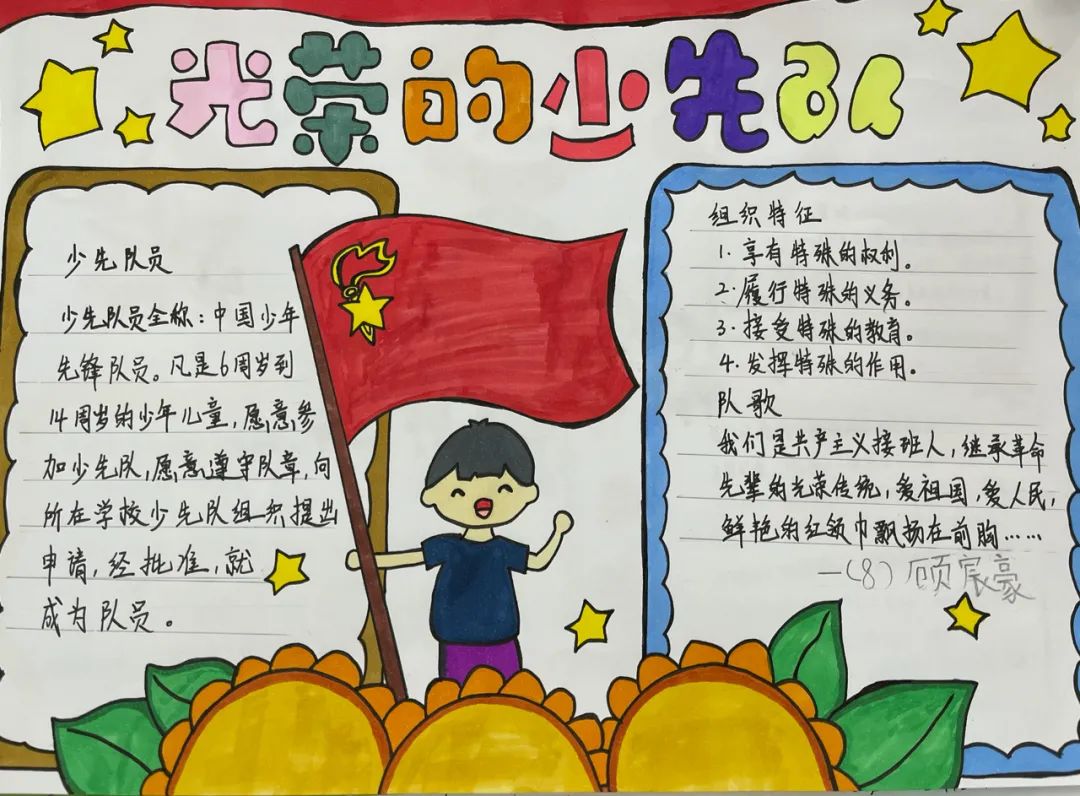 光荣的少先队
少先队员
少先队员全称：中国少年
先锋队员。凡是6周岁到
14周岁的少年儿童，愿意参
加少先队，愿意遵守队章，向
所在学校少先队组织提出
申请，经批准，就
成为队员。
组织特征
1.享有特殊的权利。
2.履行特殊的义务。
3.接受特殊的教育。
4.发挥特殊的作用。
队歌
我们是共产主义接班人，继承革命
先辈的光荣传统，爱祖国，爱人民，
鲜艳的红领巾飘扬在前胸……
一(8)顾宸豪